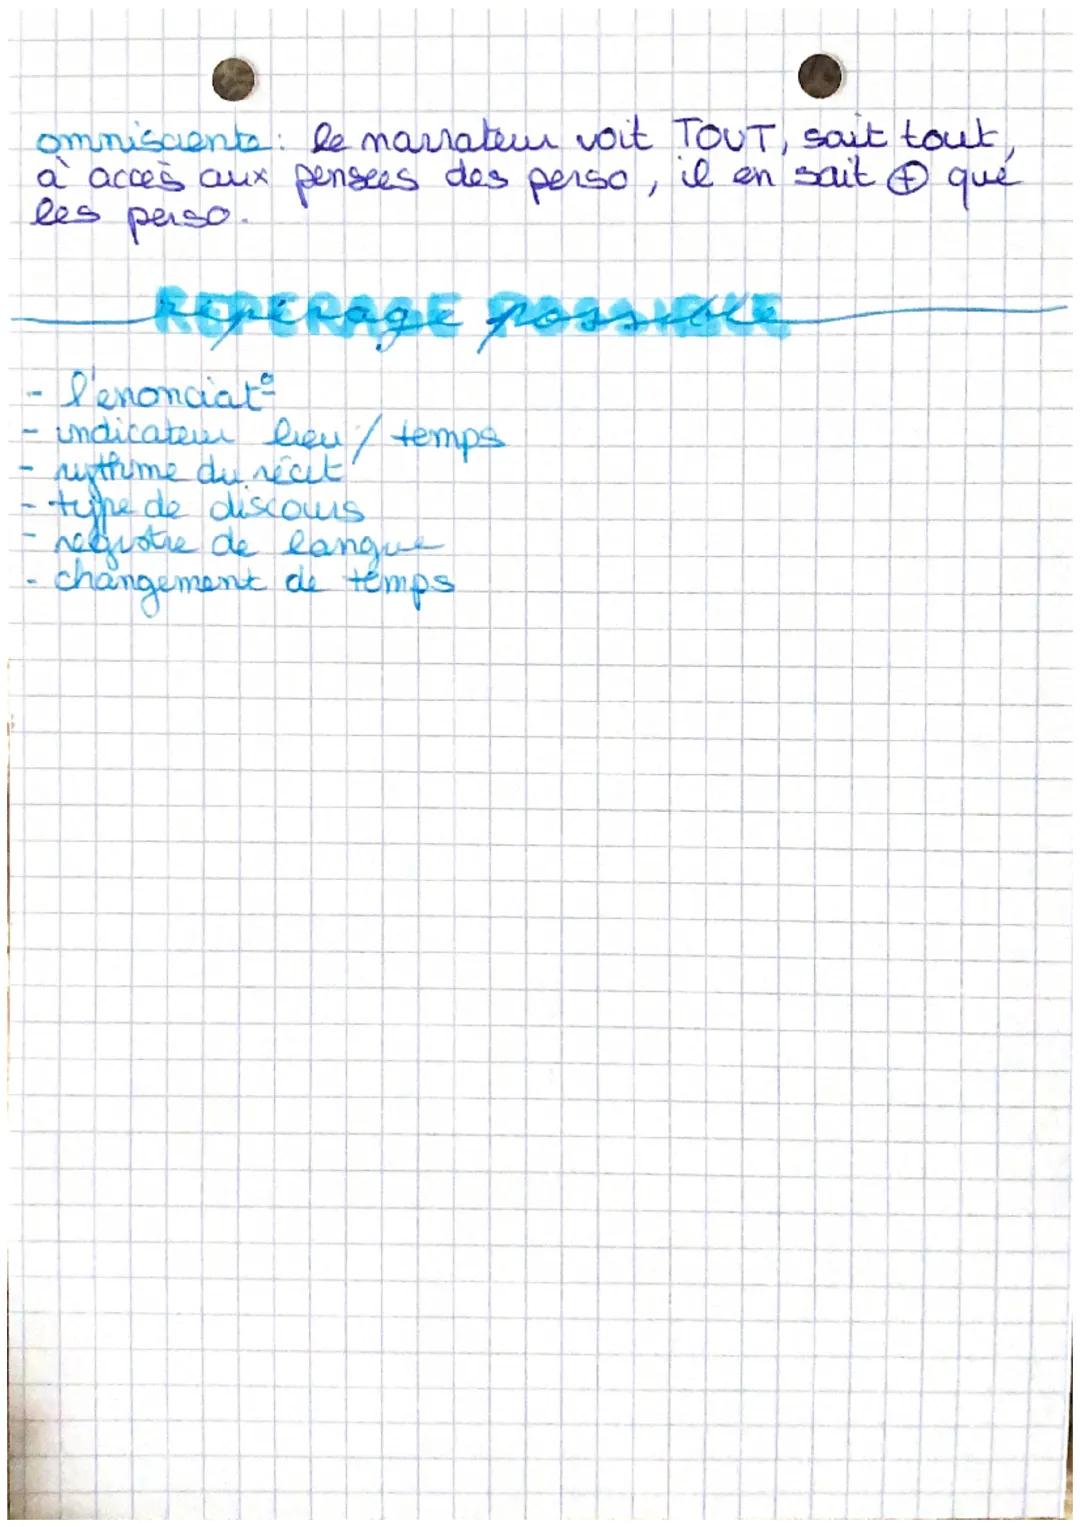 omnisciente : le narrateur voit TOUT, sait tout,
à accès aux pensées des perso, il en sait ⊕ que
les perso.
REPERAGE POSSIBLE
repérage possible
- l'enonciat°
- indicateur lieu / temps
- rythme du récit
- type de discours
- registre de langue
- changement de temps